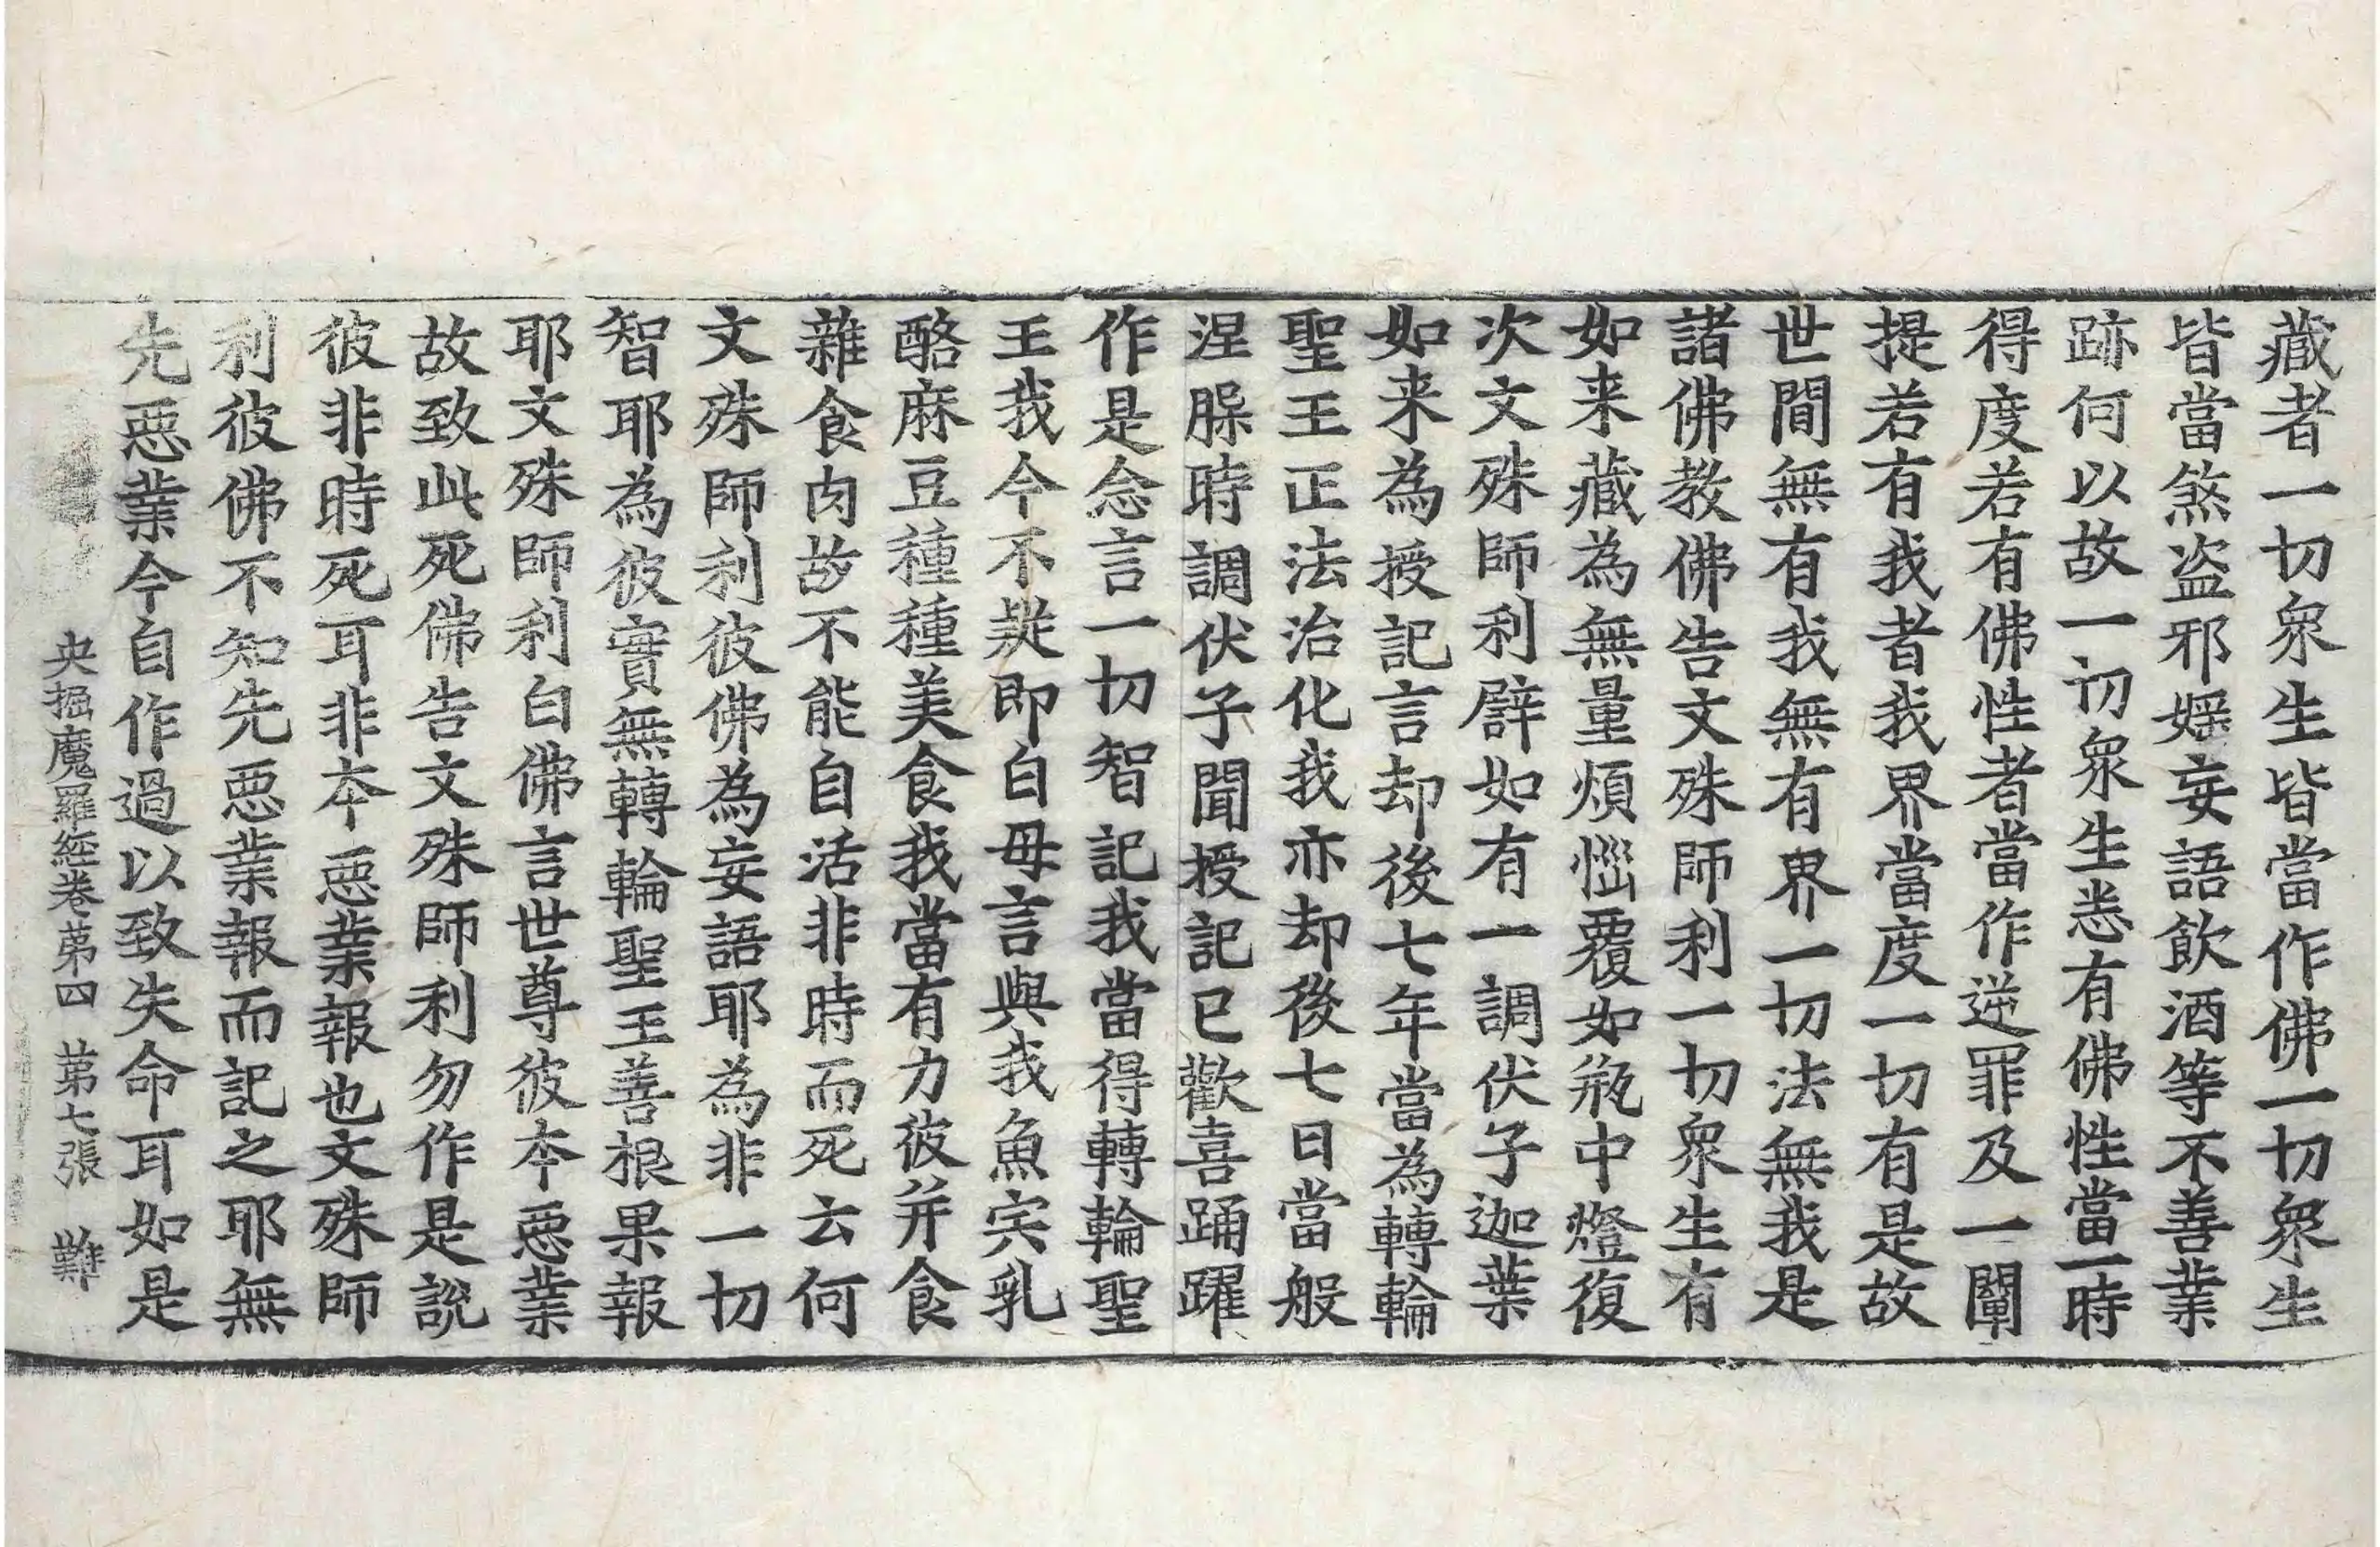 藏者一切衆生皆當作佛一切衆生
皆當煞盗邪婬妄語飲酒等不善業
跡何以故一切衆生悉有佛性當一時
得度若有佛性者當作逆罪及一闡
提若有我者我界當度一切有是故
世間無有我無有界一切法無我是
諸佛教佛告文殊師利一切衆生有
如来藏為無量煩惱覆如瓶中燈復
次文殊師利譬如有一調伏子迦葉
如来為授記言却後七年當為轉輪
聖王正法治化我亦却後七日當般
涅槃時調伏子聞授記已歡喜踊躍
作是念言一切智記我當得轉輪聖
王我今不疑即白母言與我魚宍乳
酪麻豆種種美食我當有力彼并食
雜食肉故不能自活非時而死云何
文殊師利彼佛為妄語耶為非一切
智耶為彼實無轉輪聖王善根果報
耶文殊師利白佛言世尊彼本惡業
故致此死佛告文殊師利勿作是說
彼非時死耳非本惡業報也文殊師
利彼佛不知先惡業報而記之耶無
先惡業今自作過以致失命耳如是
央掘魔羅経卷第四 第七張 難